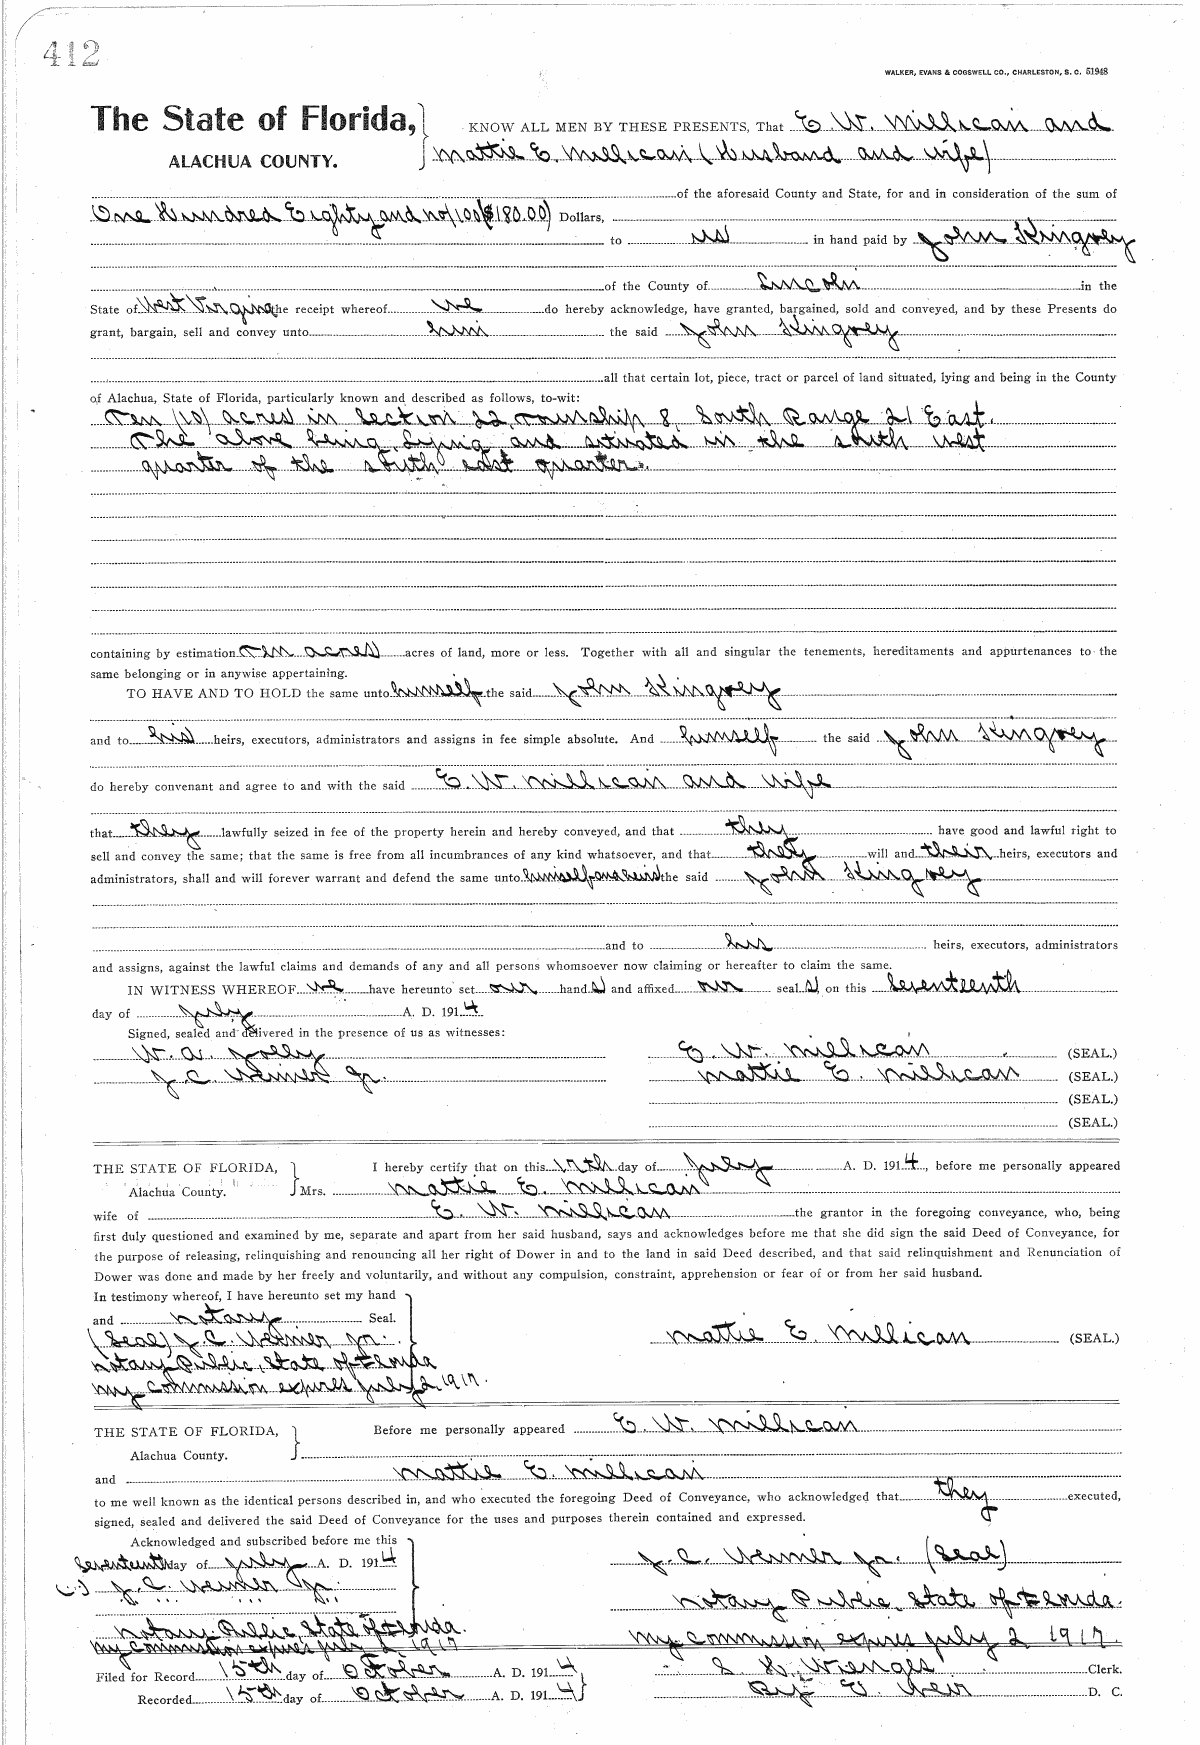 412
WALKER, EVANS & COGSWELL CO., CHARLESTON, S. C. 51948
The State of Florida,
ALACHUA COUNTY.
KNOW ALL MEN BY THESE PRESENTS, That E. W. Millican and
Mattie E. Millican (Husband and wife)
of the aforesaid County and State, for and in consideration of the sum of
One Hundred Eighty and no/100 ($180.00) Dollars,
to us in hand paid by John Kingrey
of the County of Lincoln in the
State of West Virginia the receipt whereof we do hereby acknowledge, have granted, bargained, sold and conveyed, and by these Presents do
grant, bargain, sell and convey unto him the said John Kingrey
all that certain lot, piece, tract or parcel of land situated, lying and being in the County
of Alachua, State of Florida, particularly known and described as follows, to-wit:
Ten (10) acres in Section 22, Township 8, South Range 21 East.
The above being, lying and situated in the south west
quarter of the south east quarter.
containing by estimation Ten acres acres of land, more or less. Together with all and singular the tenements, hereditaments and appurtenances to the
same belonging or in anywise appertaining.
TO HAVE AND TO HOLD the same unto himself the said John Kingrey
and to his heirs, executors, administrators and assigns in fee simple absolute. And himself the said John Kingrey
do hereby convenant and agree to and with the said E. W. Millican and wife
that they lawfully seized in fee of the property herein and hereby conveyed, and that they have good and lawful right to
sell and convey the same; that the same is free from all incumbrances of any kind whatsoever, and that they will and their heirs, executors and
administrators, shall and will forever warrant and defend the same unto himself and heirs the said John Kingrey
and to his heirs, executors, administrators
and assigns, against the lawful claims and demands of any and all persons whomsoever now claiming or hereafter to claim the same.
IN WITNESS WHEREOF we have hereunto set our hand s and affixed our seal s on this Seventeenth
day of July A. D. 1914
Signed, sealed and delivered in the presence of us as witnesses:
W. A. Jolly E. W. Millican (SEAL.)
J. C. Weimer Jr. Mattie E. Millican (SEAL.)
(SEAL.)
(SEAL.)
THE STATE OF FLORIDA, I hereby certify that on this 17th day of July A. D. 1914, before me personally appeared
Alachua County. Mrs. Mattie E. Millican
wife of E. W. Millican the grantor in the foregoing conveyance, who, being
first duly questioned and examined by me, separate and apart from her said husband, says and acknowledges before me that she did sign the said Deed of Conveyance, for
the purpose of releasing, relinquishing and renouncing all her right of Dower in and to the land in said Deed described, and that said relinquishment and Renunciation of
Dower was done and made by her freely and voluntarily, and without any compulsion, constraint, apprehension or fear of or from her said husband.
In testimony whereof, I have hereunto set my hand
and Notary Seal.
(Seal) J. C. Weimer Jr. Mattie E. Millican (SEAL.)
Notary Public, State of Florida
My commission expires July 2 1917.
THE STATE OF FLORIDA, Before me personally appeared E. W. Millican
Alachua County.
and Mattie E. Millican
to me well known as the identical persons described in, and who executed the foregoing Deed of Conveyance, who acknowledged that they executed,
signed, sealed and delivered the said Deed of Conveyance for the uses and purposes therein contained and expressed.
Acknowledged and subscribed before me this
Seventeenth day of July A. D. 1914 J. C. Weimer Jr. (Seal)
J. C. Weimer Jr. Notary Public, State of Florida.
Notary Public State of Florida.
My commission expires July 2 1917 My commission expires July 2 1917.
Filed for Record 15th day of October A. D. 1914 S. H. Wienges Clerk.
Recorded 15th day of October A. D. 1914 By E. Weir D. C.